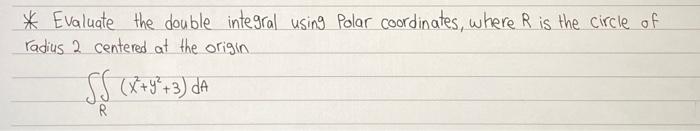 * Evaluate the double integral using Polar coordinates, where R is the circle of
radius 2 centered at the origin
∬ (x²+y²+3) dA
R